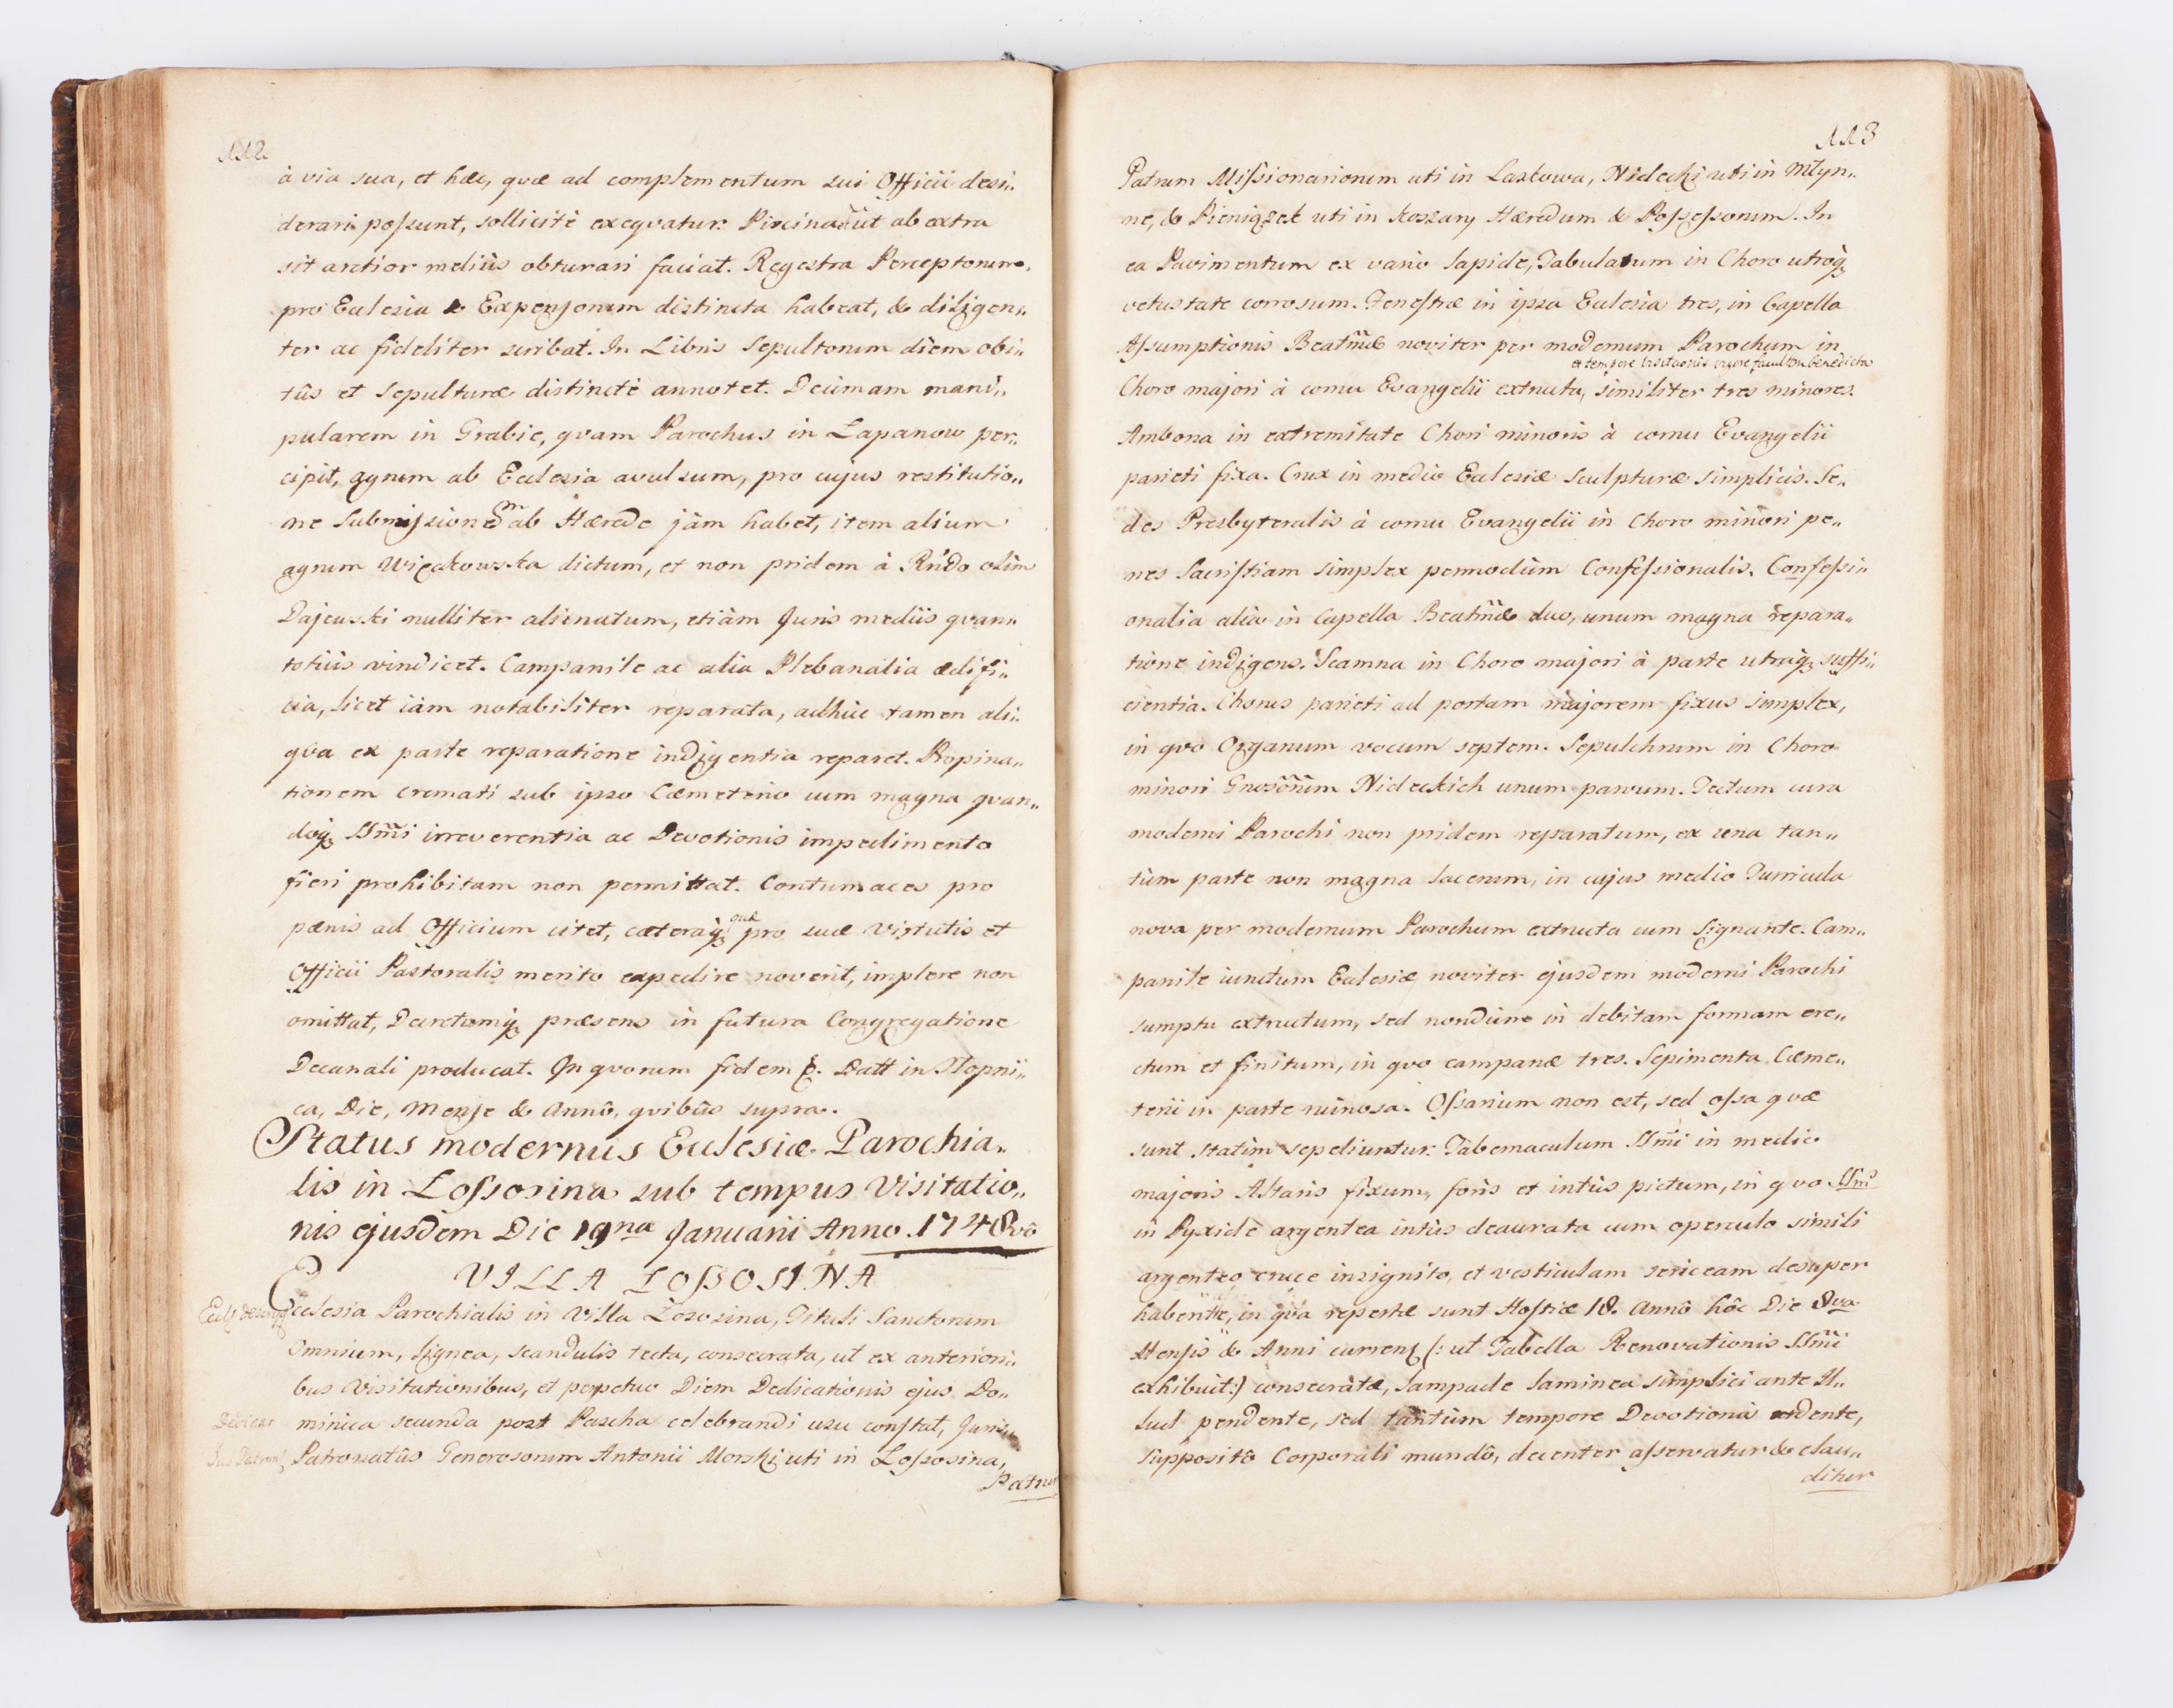 112.
à via sua, et hæc, quæ ad complementum sui Officii desi„
derari possunt, sollicitè exeqvatur. Piscina ut ab extra
sit arctior meliùs obturari faciat. Regestra Perceptorum
pro Ecclesia & Expensorum distincta habeat, & diligen„
ter ac fideliter scribat. In Libris Sepultorum diem obi„
tûs et Sepulturæ distinctè annotet. Decimam mani„
pularem in Grabie, qvam Parochus in Łapanow per„
cipit, agrum ab Ecclesia avulsum, pro cujus restitutio„
ne Submissionem ab Hærede jàm habet, item alium
agrum Więckowska dictum, et non pridem à Rńdo olim
Dajewski nulliter alienatum, etiàm Juris mediis qvan„
totiùs vindicet. Campanile ac alia Plebanalia ædifi„
cia, licet iàm notabiliter reparata, adhùc tamen ali„
qva ex parte reparatione indigentia reparet. Propina„
tionem cremati sub ipso Cæmeterio cum magna qvan„
doq; SSmi irreverentia ac Devotionis impedimento
fieri prohibitam non permittat. Contumaces pro
pœnis ad Officium citet, cæteraq; quæ pro suæ Virtutis et
Officii Pastoralis merito expedire noverit, implere non
omittat, Decretumq; præsens in futura Congregatione
Decanali producat. In qvorum fidem &. Datt in Słopni„
ca, Die, Mense & Annô, qvibûs supra.
Status modernus Ecclesiæ Parochia„
lis in Łossosina sub tempus Visitatio„
nis ejusdem Die 19na Januarii Anno 1748vô
VILLA ŁOSSOSINA
Ecclesia Parochialis in Villa Łososina, Tituli Sanctorum
Omnium, lignea, scandulis tecta, consecrata, ut ex anteriori„
bus Visitationibus, et perpetuo Diem Dedicationis ejus Do„
Dedicat minica secunda post Pascha celebrandi usu constat, Juris
Jus Patron Patronatûs Generosorum Antonii Morski uti in Łossosina,
Patrum
113
Patrum Missionariorum uti in Laskowa, Nidecki uti in Młyn„
ne, & Pieniązek uti in Koszary Hæredum & Possessorum. In
ea Pavimentum ex vario lapide, Tabulatum in Choro utroq;
vetustate corrosum. Fenestræ in ipsa Ecclesia tres, in Capella
Assumptionis Beatmæ noviter per modernum Parochum in
et tempore Visitationis benedicta
Choro majori à cornu Evangelii extructa, similiter tres minores.
Ambona in extremitate Chori minoris à cornu Evangelii
parieti fixa. Crux in medio Ecclesiæ Sculpturæ simplicis. Se„
des Presbyteralis à cornu Evangelii in Choro minori pe„
nes Sacristiam simplex permodùm Confessionalis. Confessi„
onalia alia in Capella Beatmæ duo, unum magna repara„
tione indigens. Scamna in Choro majori à parte utraq; suffi„
cientia. Chorus parieti ad portam majorem fixus simplex,
in qvo Organum vocum septem. Sepulchrum in Choro
minori Gnosorum Nideckich unum parvum. Tectum cura
moderni Parochi non pridem reparatum, ex una tan„
tùm parte non magna lacerum, in cujus medio Turricula
nova per modernum Parochum extructa cum Signante. Cam„
panile iunctum Ecclesiæ noviter ejusdem moderni Parochi
sumptu extructum, sed nondùm in debitam formam ere„
ctum et finitum, in qvo campanæ tres. Sepimenta Cæme„
terii in parte ruinosa. Ossarium non est, sed ossa qvæ
sunt statim sepeliuntur. Tabernaculum SSmi in medio
majoris Altaris fixum, foris et intùs pictum, in qvo SSmũ
in Pyxide argentea intùs deaurata cum operculo simili
argenteo cruce insignito, et vesticulam sericeam desuper
habente, in qva repertæ sunt Hostiæ 18. Annô hôc Die 8va
Mensis & Anni curren (: ut Tabella Renovationis SSmi
exhibuit :) consecratæ, Lampade laminea simplici ante Il„
lud pendente, sed tantùm tempore Devotionis ardente,
supposito Corporali mundô, decenter asservatur & clau„
ditur